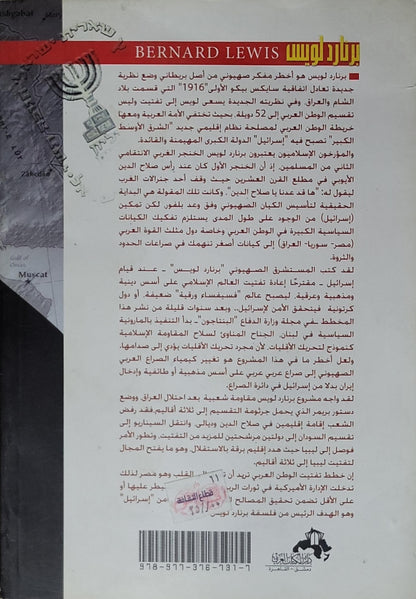 برنارد لويس
BERNARD LEWIS
برنارد لويس هو أخطر مفكر صهيوني من أصل بريطاني وضع نظرية
جديدة تعادل اتفاقية سايكس بيكو الأولى "1916" التي قسمت بلاد
الشام والعراق. وفي نظريته الجديدة يسعى لويس إلى تفتيت وليس
تقسيم الوطن العربي إلى 52 دويلة، بحيث تختفي الأمة العربية ومعها
خريطة الوطن العربي لمصلحة نظام إقليمي جديد "الشرق الأوسط
الكبير" تصبح فيه "إسرائيل" الدولة الكبرى المهيمنة والقائدة.
والمؤرخون الإسلاميون يعتبرون برنارد لويس الخنجر الغربي الانتقامي
الثاني من المسلمين. إذ أن الخنجر الأول كان عند رأس صلاح الدين
الأيوبي في مطلع القرن العشرين حيث وقف أحد جنرالات الغرب
ليقول له: "ها قد عدنا يا صلاح الدين". وكانت تلك المقولة هي البداية
الحقيقية لتأسيس الكيان الصهيوني وفق وعد بلفور. لكن تمكين
(إسرائيل) من الوجود على طول المدى يستلزم تفكيك الكيانات
السياسية الكبيرة في الوطن العربي وخاصة دول مثلث القوة العربي
(مصر- سوريا- العراق) إلى كيانات أصغر تنهمك في صراعات الحدود
والثروة.
لقد كتب المستشرق الصهيوني "برنارد لويس" - عند قيام
إسرائيل - مقترحاً إعادة تفتيت العالم الإسلامي على أسس دينية
ومذهبية وعرقية، ليصبح عالم "فسيفساء ورقية" ضعيفة، أو دول
كرتونية. فيتحقق الأمن لإسرائيل.. وبعد سنوات قليلة من نشر هذا
المخطط - في مجلة وزارة الدفاع "البنتاجون" - بدأ التنفيذ بالمارونية
السياسية في لبنان، الجناح المناوئ لسلاح المقاومة الإسلامية
كنموذج لتحريك الأقليات. لأن مجرد تحريك الأقليات يؤدي إلى صدامها،
ولعل أخطر ما في هذا المشروع هو تغيير كيمياء الصراع العربي
الصهيوني إلى صراع عربي عربي على أسس مذهبية أو طائفية وإدخال
إيران بدلا من إسرائيل في دائرة الصراع.
لقد واجه مشروع برنارد لويس مقاومة شعبية بعد احتلال العراق ووضع
دستور بريمر الذي يحمل جرثومة التقسيم إلى ثلاثة أقاليم، فقد رفض
الشعب إقامة إقليمين في صلاح الدين وديالى. وانتقل السيناريو إلى
تقسيم السودان إلى دولتين مرشحتين للمزيد من التفتيت. وتطور الأمر
فوصل إلى ليبيا حيث هدد إقليم برقة بالاستقلال. وهو ما يفتح المجال
لتفتيت ليبيا إلى ثلاثة أقاليم.
إن خطط تفتيت الوطن العربي تريد أن القلب وهو مصر لذلك
تدخلت الإدارة الأمريكية في ثورات الربيع عليها أو
على الأقل تضمن تحقيق المصالح من "إسرائيل"
وهو الهدف الرئيس من فلسفة برنارد لويس
قطاع الثقافة
Gulf of
Muscat
دار الكتاب العربي
دمشق - القاهرة
978-977-376-731-7